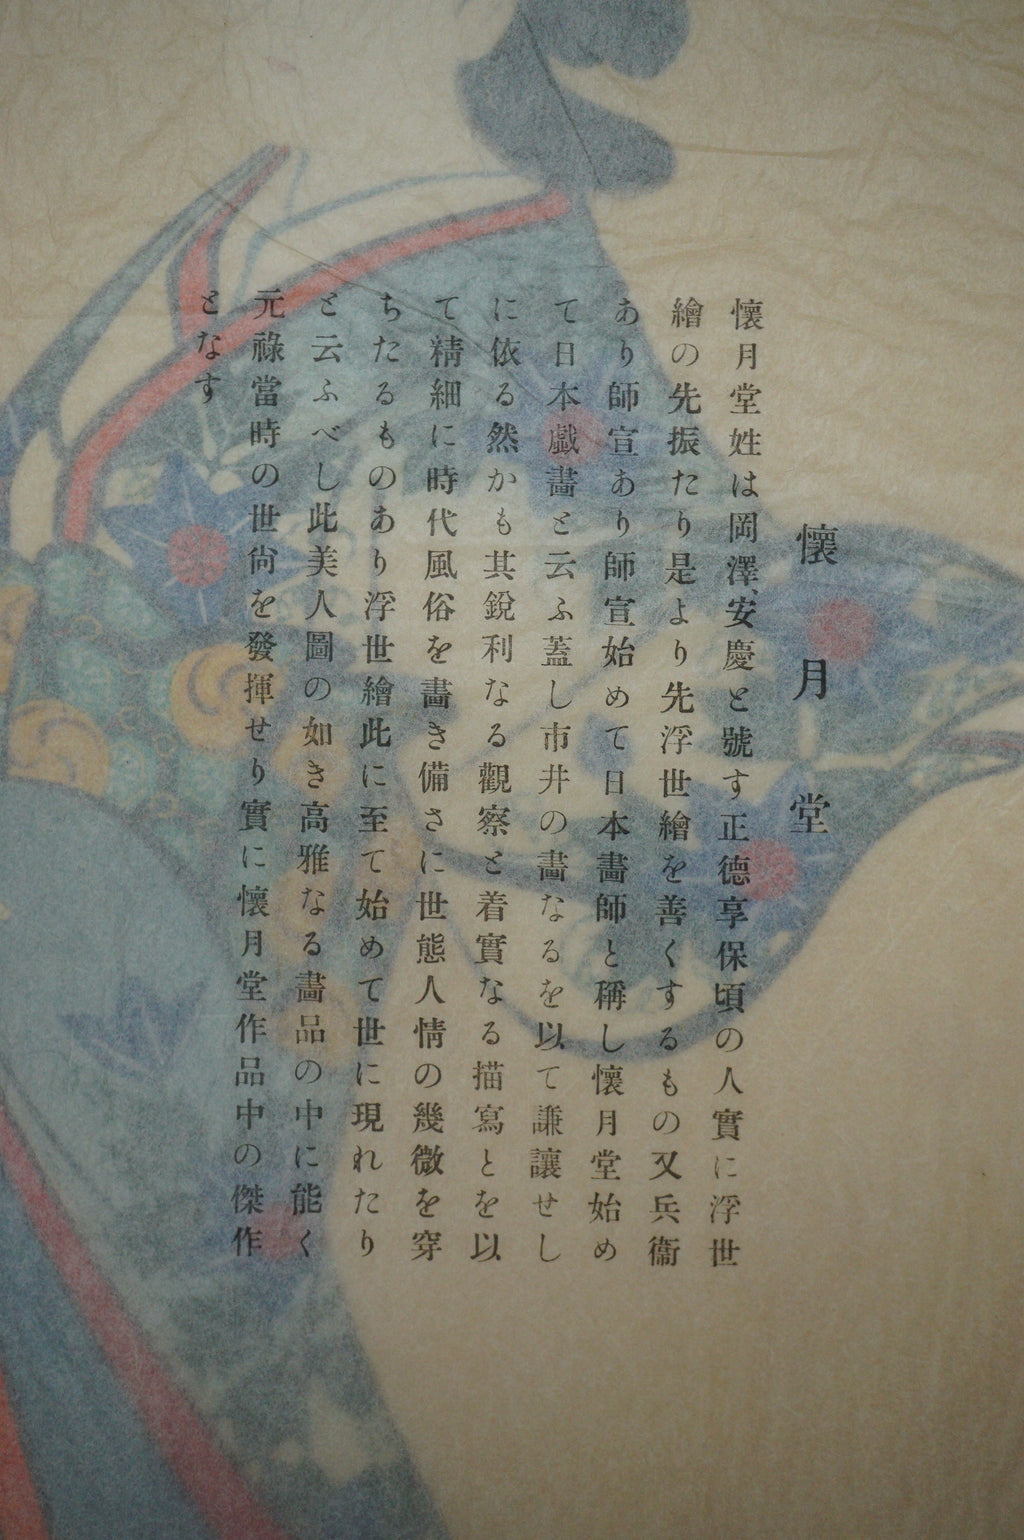 懷月堂
懷月堂姓は岡澤、安慶と號す正德享保頃の人實に浮世
繪の先振たり是より先浮世繪を善くするもの又兵衞
あり師宣あり師宣始めて日本畵師と稱し懷月堂始め
て日本戯畵と云ふ蓋し市井の畵なるを以て謙讓せし
に依る然かも其銳利なる觀察と着實なる描寫とを以
て精細に時代風俗を畵き備さに世態人情の幾微を穿
ちたるものあり浮世繪此に至て始めて世に現れたり
と云ふべし此美人圖の如き高雅なる畵品の中に能く
元祿當時の世尙を發揮せり實に懷月堂作品中の傑作
となす